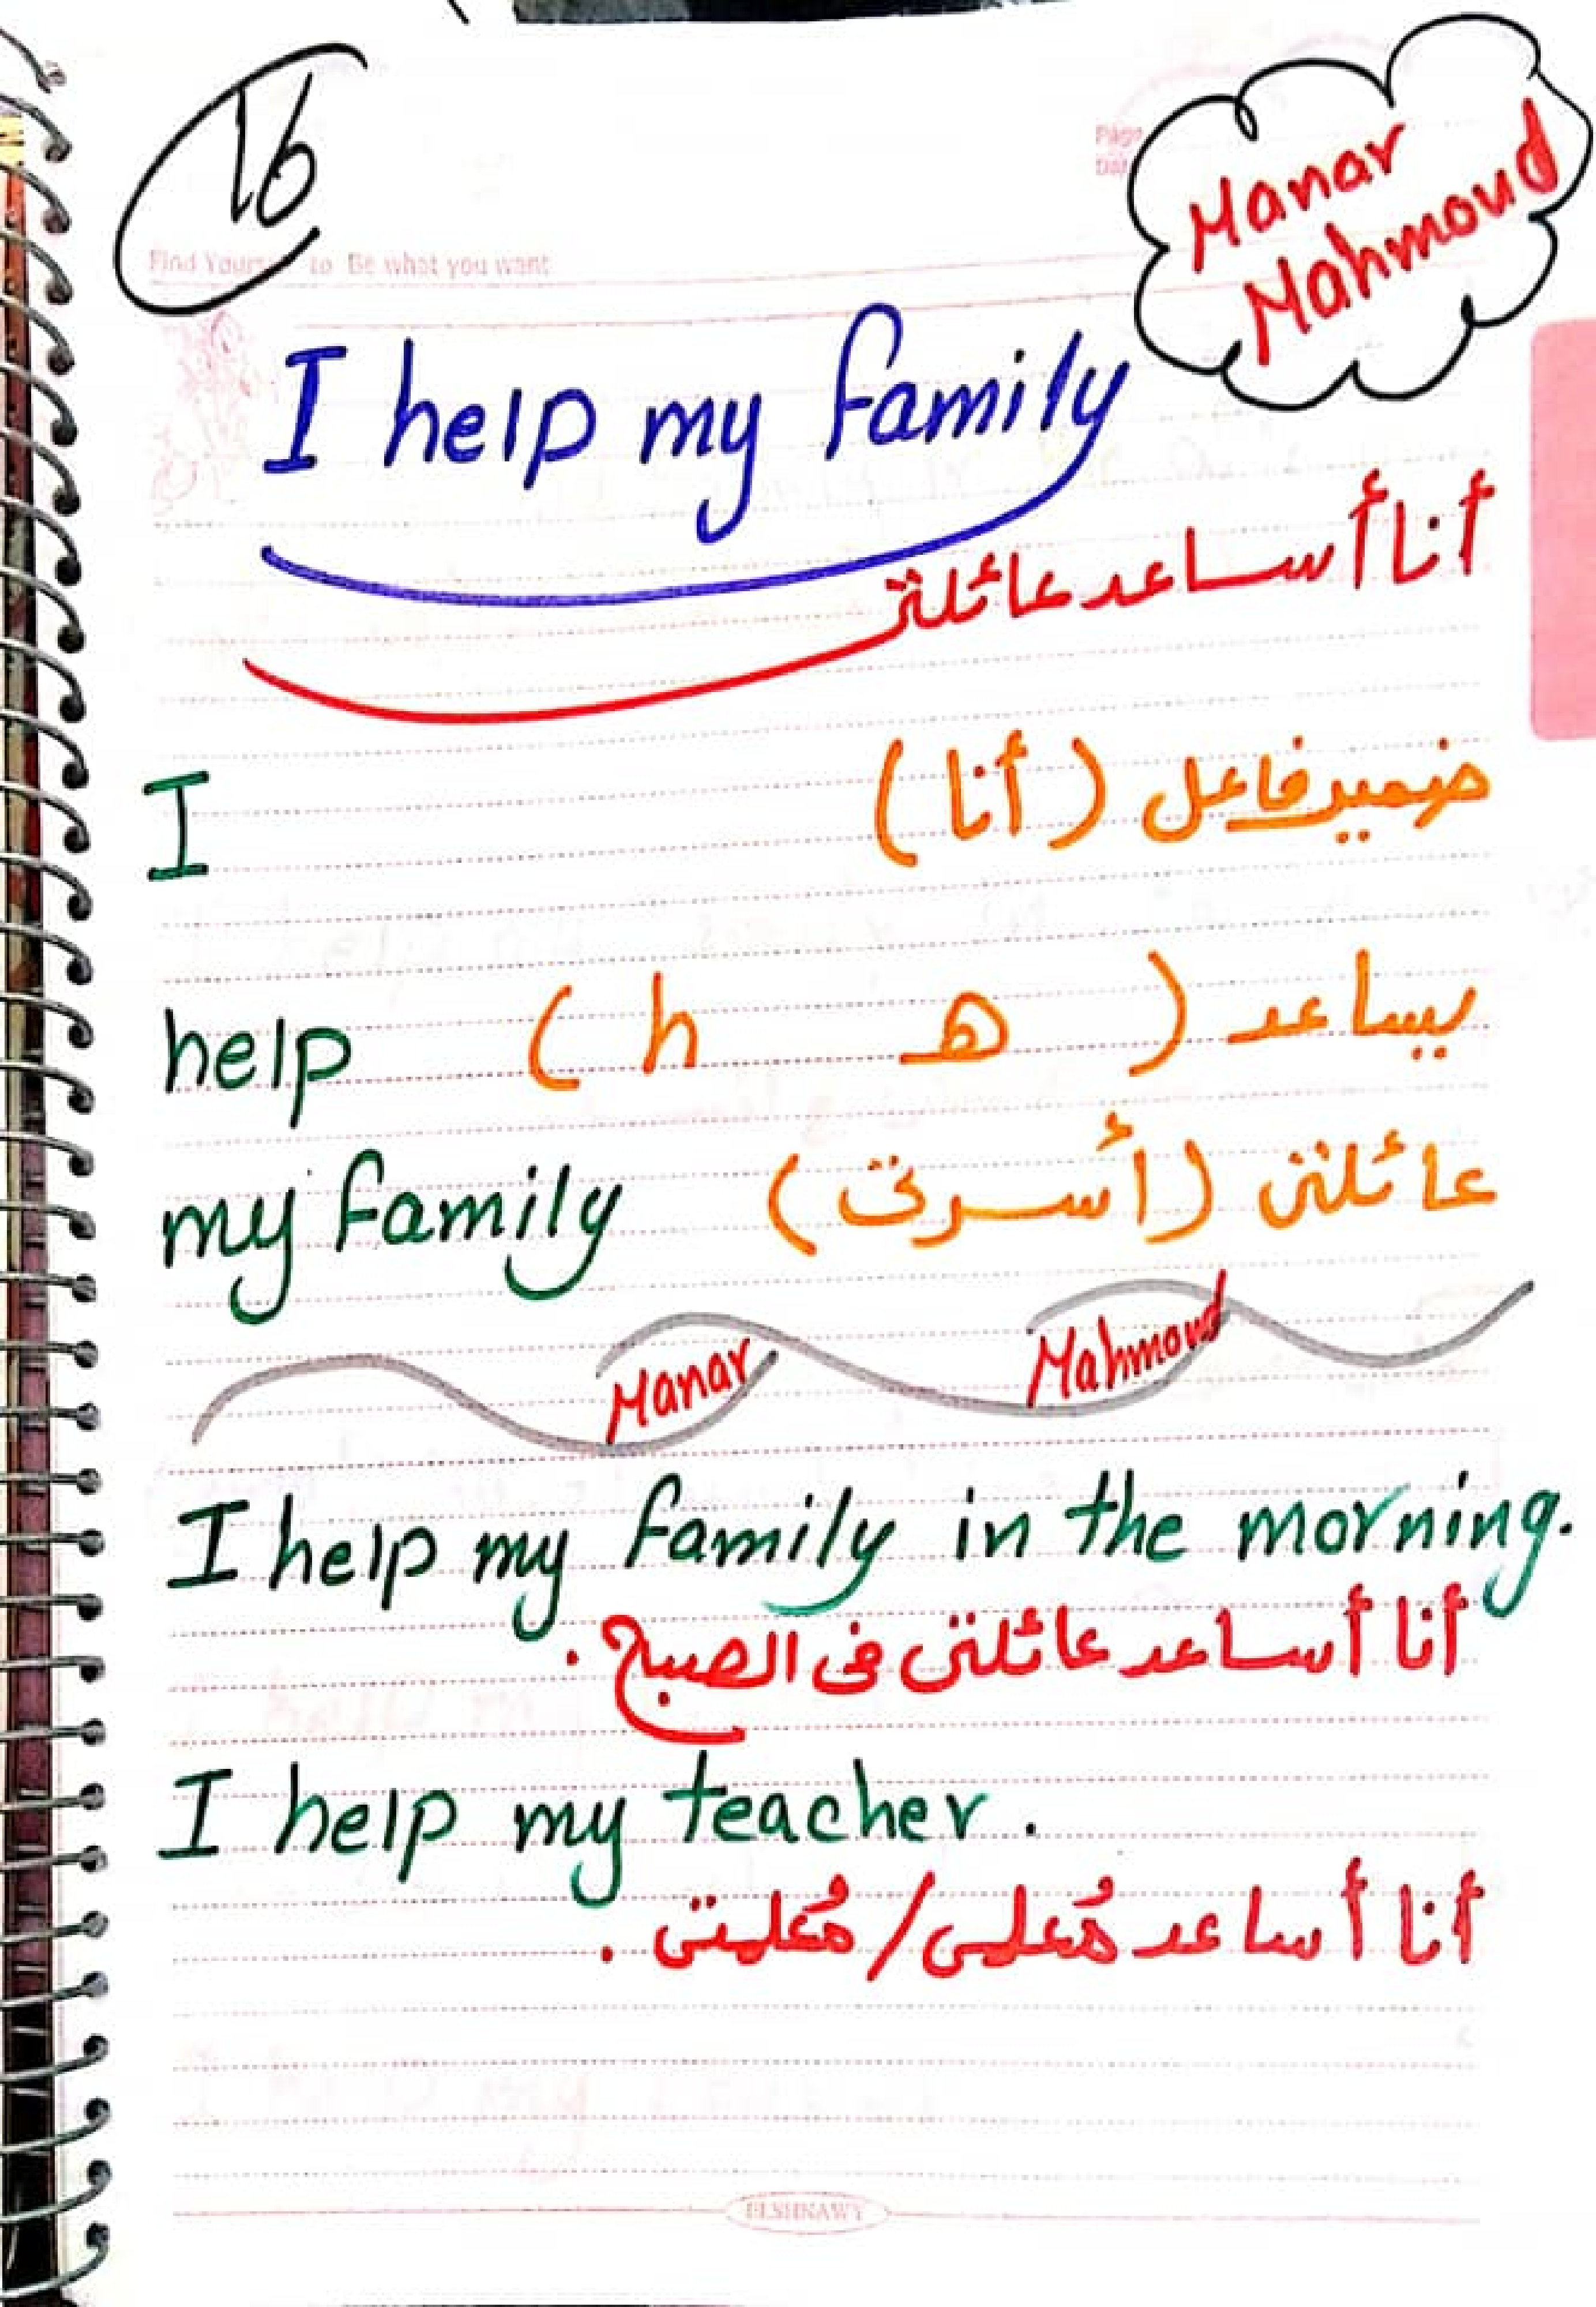 16
Manar
Mahmoud
to Be what you want
I help my family
أنا أساعد عائلتى
I ضمير فاعل (أنا)
help يساعد ( h ه )
my family عائلتى (أسرتى)
Manar Mahmoud
I help my family in the morning.
أنا أساعد عائلتى فى الصباح.
I help my teacher.
أنا أساعد مُعلمى/مُعلمتى.
ELSHNAWY